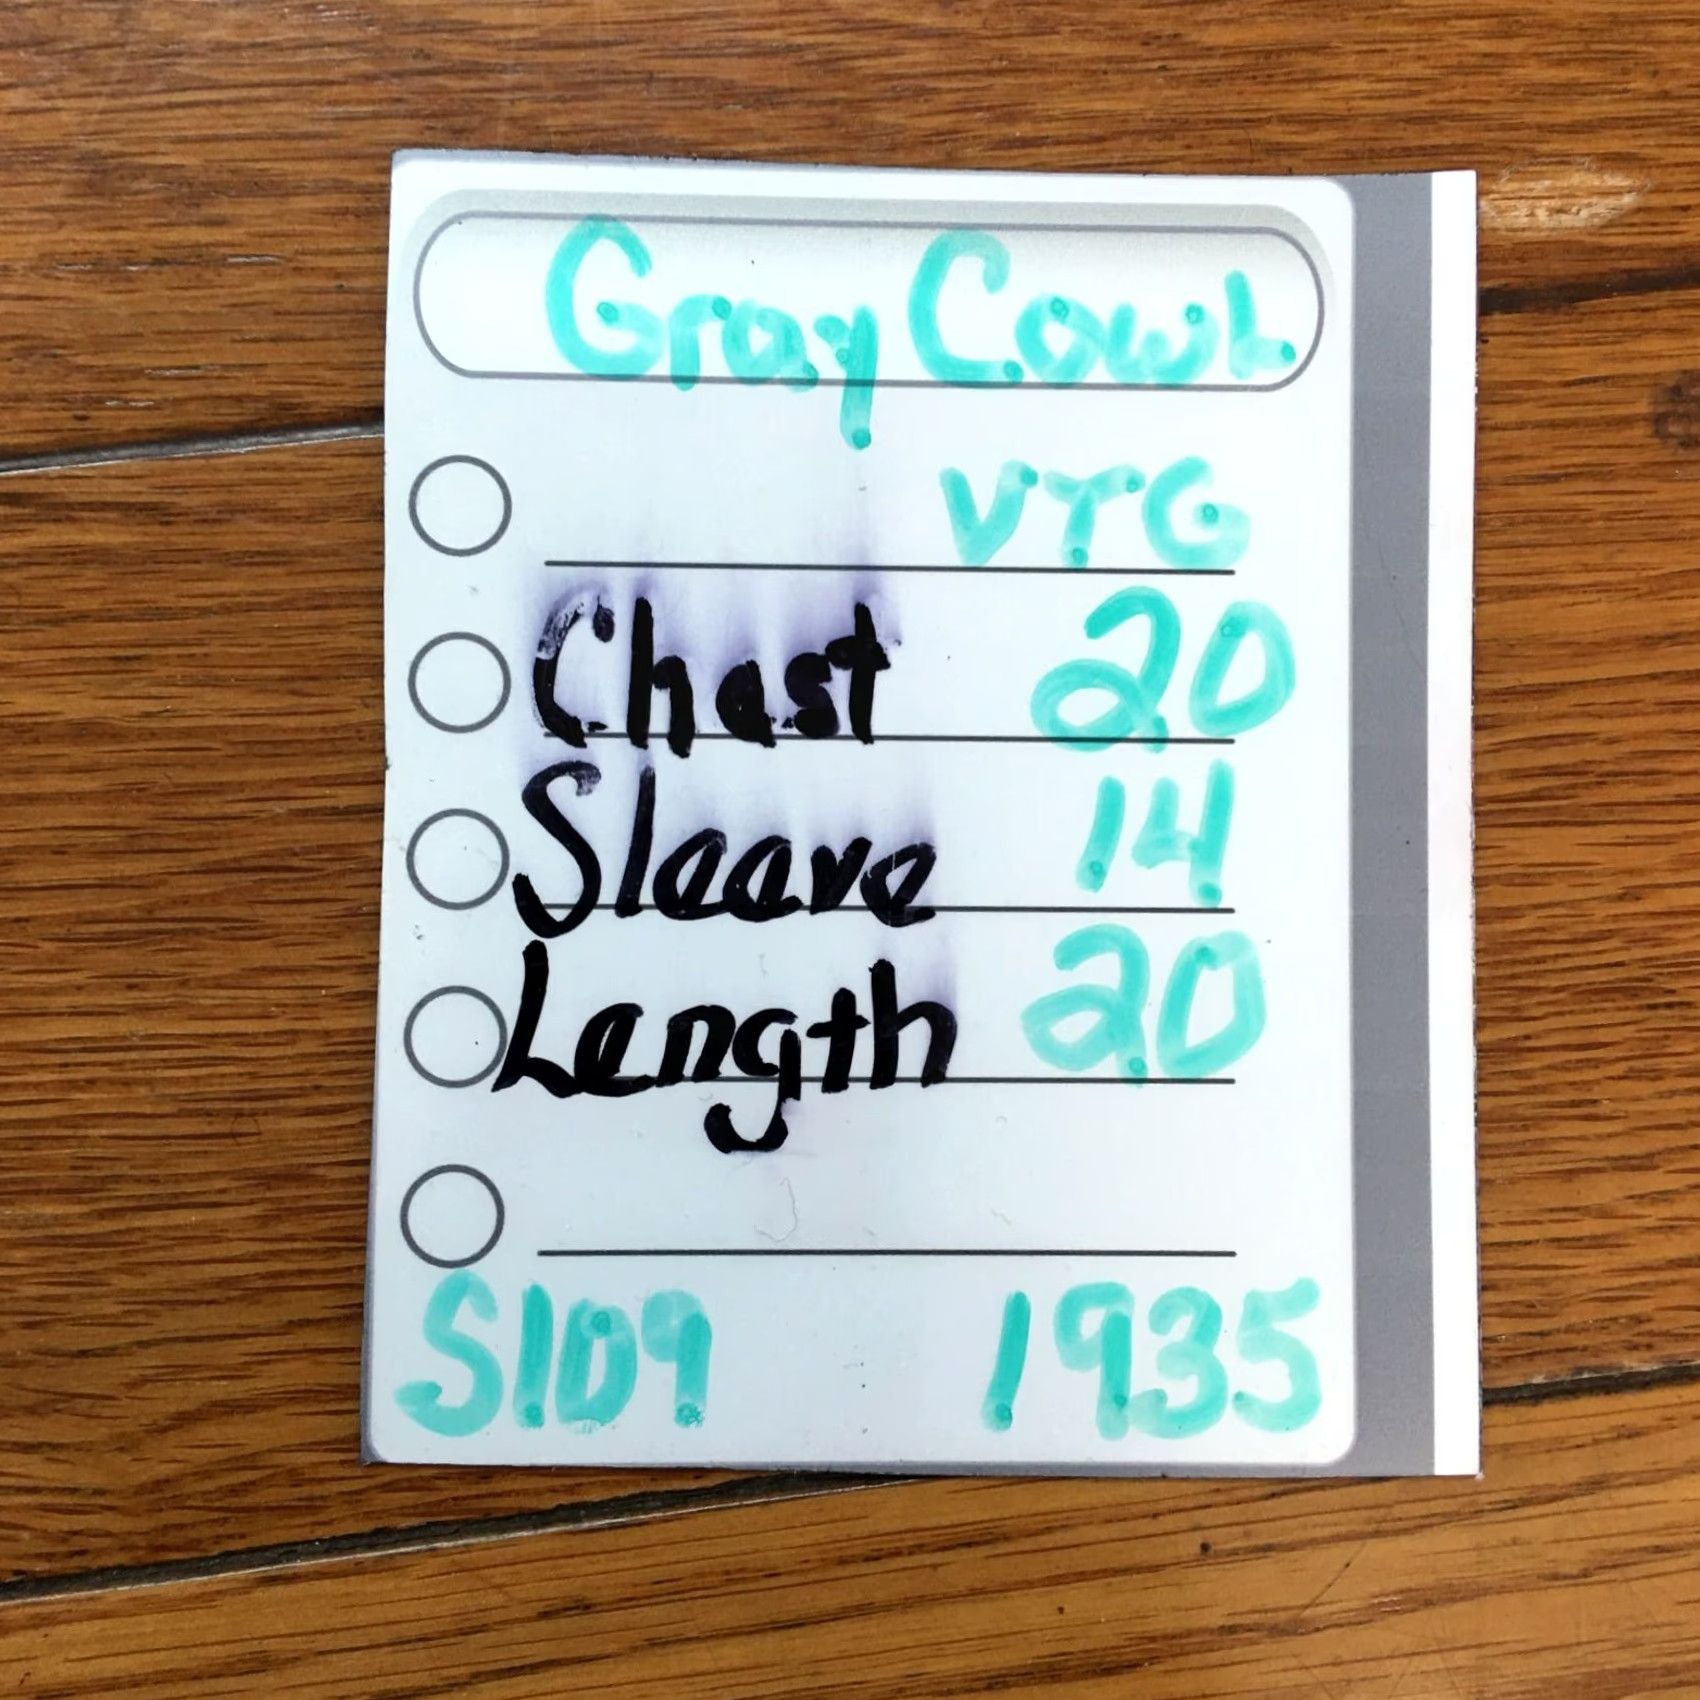 Gray Cowl
VTG
Chest 20
Sleeve 14
Length 20
S109 1935